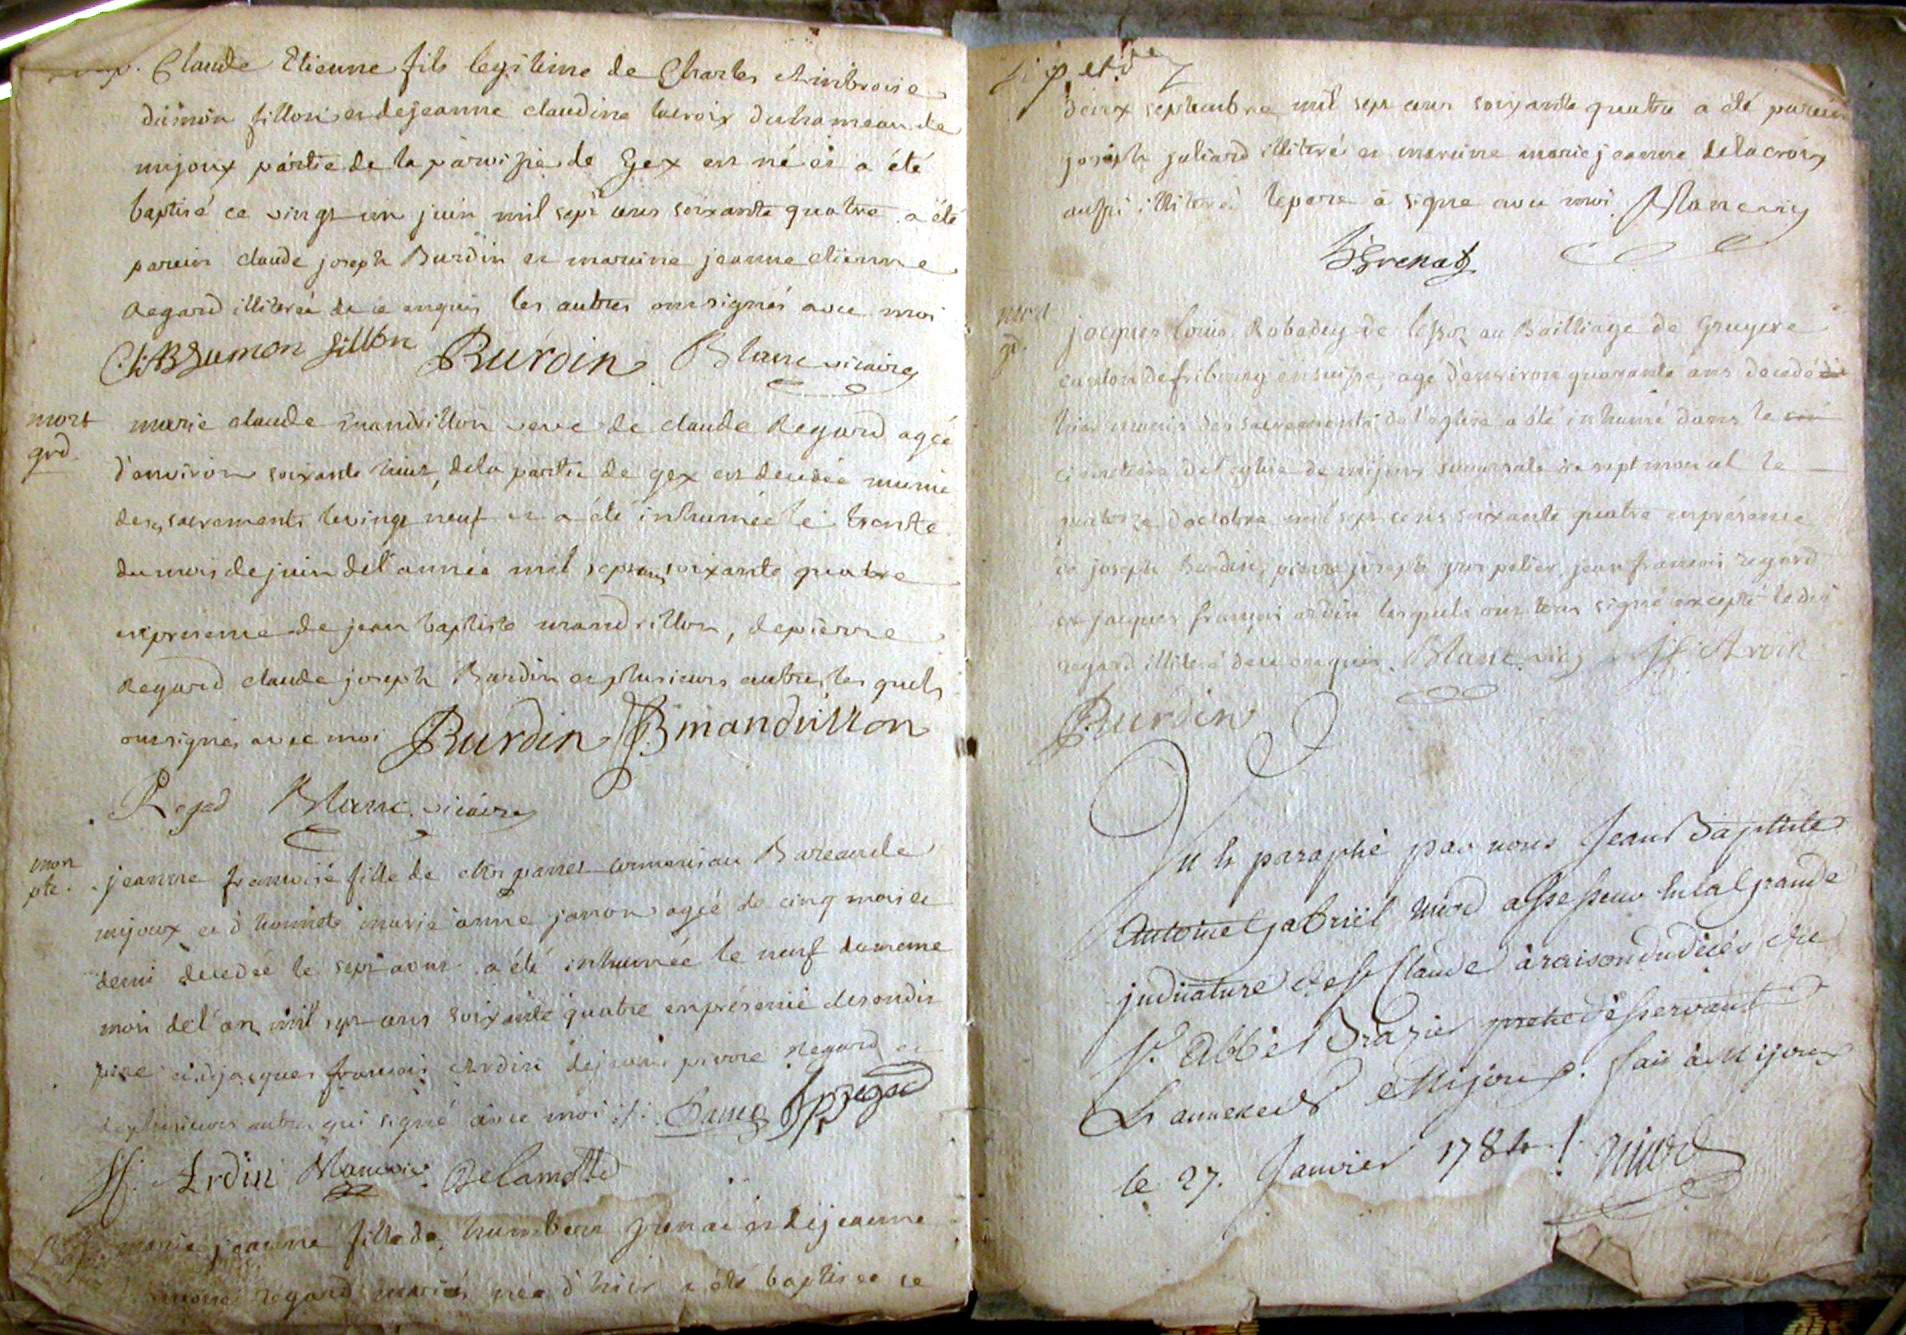 Claude Etienne fils legitime de Charles Ambroise
dumon fillon et de jeanne claudine lacroix du hameau de
mijoux partie de la paroisse de Gex est né et a été
baptisé ce vingt un juin mil sept cens soixante quatre a été
parein claude joseph Burdin et mareine jeanne etienne
Regard illiterée de ce enquis les autres ont signés avec moi
Ch AB Dumon fillon Burdin Blanc vicaire
mort
grd.
marie claude mandrillon veve de claude Regard agée
d'environ soixante huit, de la partie de gex est decedée munie
des sacrements le vingt neuf et a été inhumée le trente
du mois de juin de l'année mil sept cens soixante quatre
en presence de jean baptiste mandrillon, de pierre
Regard claude joseph Burdin et plusieurs autres les quels
ont signés avec moi Burdin JB mandrillon
Regad Blanc vicaire
mort
pte.
jeanne francoise fille de commis au Bureau de
mijoux et d'honnete marie anne janon agée de cinq mois et
demi decedée le sept aout a été inhumée le neuf du meme
mois de l'an mil sept cens soixante quatre en présence de son dit
pere et de jacques francois Ardin de jean pierre Regard et
de plusieurs autres qui signé avec moi
J f. Ardin Blanc vic. Delamotte
Bap. marie jeanne fille de humbert grenat et de jeanne
regard mariés née d'hier a été baptisée ce
deux septembre mil sept cens soixante quatre a été parein
joseph juliard illiteré et mareine marie jeanne delacroix
aussi illiteré le pere a signe avec moi Blanc vic
h Grenat
mort
gd.
jacques louis Robadey de lessoz au Bailliage de Gruyere
canton de fribourg en suisse, agé d'environ quarante ans decedé
hier munis des sacrements de l'eglise a été inhumé dans le
cimetiere de l'eglise de mijoux succursale de septmoncel le
quatorze d'octobre mil sept cens soixante quatre en présence
de joseph Burdin, pierre joseph gros pelier, jean francois regard
et jacques françois ardin lesquels ont tous signé excepté ledit
regard illiteré de ce enquis. Blanc vic J f Ardin
Burdin
Vu et paraphé par nous Jean Baptiste
Antoine Gabriël Nivod assesseur en la grande
judicature de St Claude à raison du décès du
Sr. Abbé Brasier pretre desservant
L'annexe de Mijoux. fait à Mijoux
le 27. Janvier 1784. Nivod